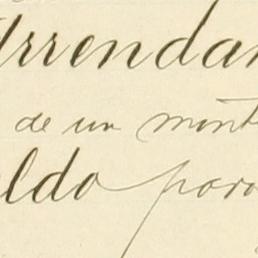 Arrendam
de un mont
eldo para